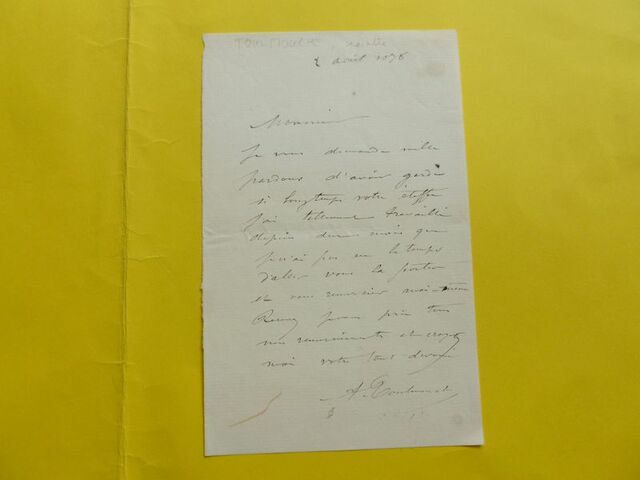 TOULMOUCHE
2 avril 1876
Monsieur
Je vous demande mille
pardons d'avoir gardé
si longtemps votre étoffe
j'ai tellement travaillé
depuis deux mois que
je n'ai pas eu le temps
d'aller vous la porter
et vous remercier moi-même
Recevez je vous prie tous
mes remerciements et croyez
moi votre tout dévoué
A. Toulmouche